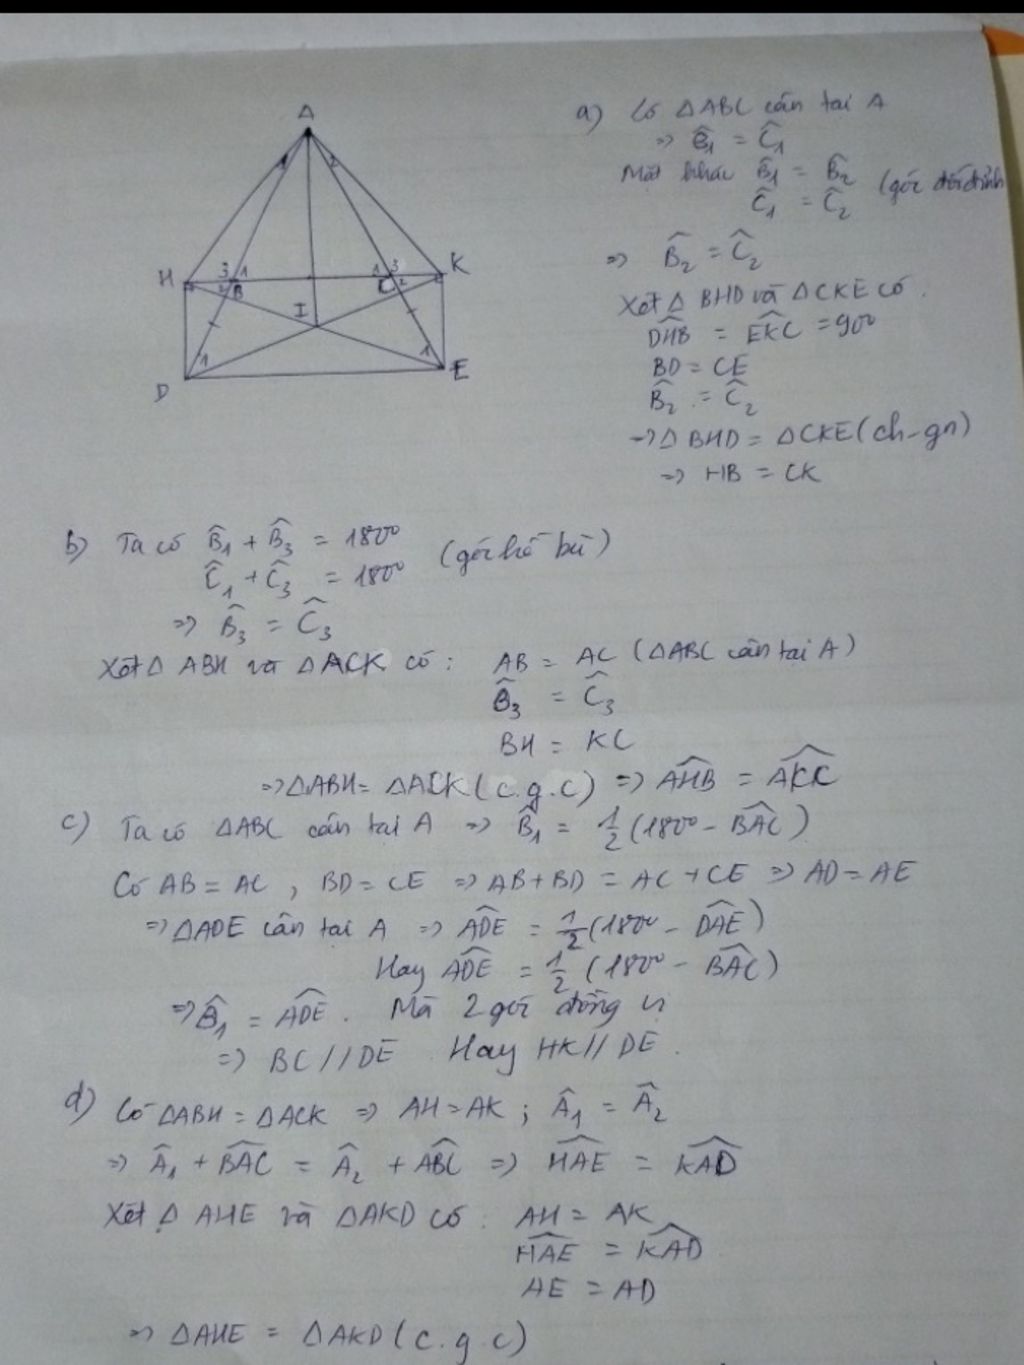 A
H
K
3 1
1 3
2 B
C 2
I
1
1
D
E
a) Có △ABC cân tại A
=> B̂1 = Ĉ1
Mặt khác B̂1 = B̂2 (góc đối đỉnh
Ĉ1 = Ĉ2
=> B̂2 = Ĉ2
Xét △ BHD và △CKE có :
DHB = EKC = 90⁰
BD = CE
B̂2 = Ĉ2
=> △ BHD = △CKE (ch-gn)
=> HB = CK
b) Ta có B̂1 + B̂3 = 180⁰ (góc kề bù)
Ĉ1 + Ĉ3 = 180⁰
=> B̂3 = Ĉ3
Xét △ ABH và △ACK có : AB = AC (△ABC cân tại A)
B̂3 = Ĉ3
BH = KC
=> △ABH = △ACK (c.g.c) => AHB = AKC
c) Ta có △ABC cân tại A => B̂1 = 1/2 (180⁰ - BAC)
Có AB = AC , BD = CE => AB + BD = AC + CE => AD = AE
=> △ADE cân tại A => ADE = 1/2 (180⁰ - DAE)
Hay ADE = 1/2 (180⁰ - BAC)
=> B̂1 = ADE . Mà 2 góc đồng vị
=> BC // DE Hay HK // DE .
d) Có △ABH = △ACK => AH = AK ; Â1 = Â2
=> Â1 + BAC = Â2 + ABC => HAE = KAD
Xét △ AHE và △AKD có : AH = AK
HAE = KAD
AE = AD
=> △AHE = △AKD (c.g.c)